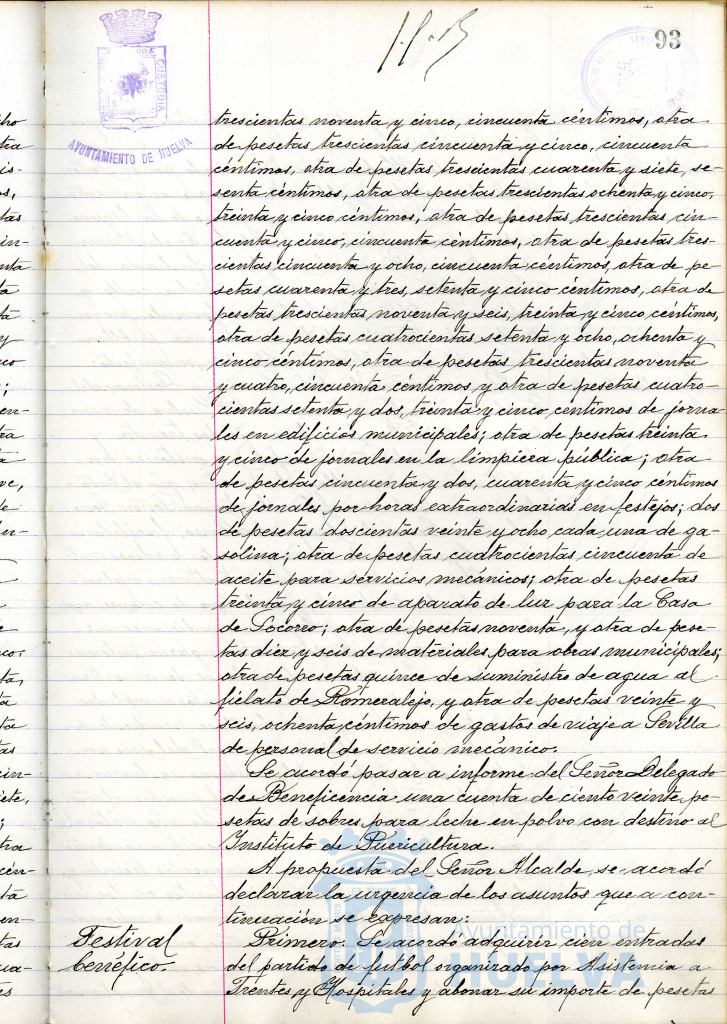 93
AYUNTAMIENTO DE HUELVA
trescientas noventa y cinco, cincuenta céntimos, otra
de pesetas trescientas cincuenta y cinco, cincuenta
céntimos, otra de pesetas trescientas cuarenta y siete, se-
senta céntimos, otra de pesetas trescientas ochenta y cinco,
treinta y cinco céntimos, otra de pesetas, trescientas, cin-
cuenta y cinco, cincuenta céntimos, otra de pesetas tres-
cientas cincuenta y ocho, cincuenta céntimos, otra de pe-
setas cuarenta y tres, setenta y cinco céntimos, otra de
pesetas, trescientas noventa y seis, treinta y cinco céntimos,
otra de pesetas cuatrocientas setenta y ocho, ochenta y
cinco céntimos, otra de pesetas trescientas noventa
y cuatro, cincuenta céntimos y otra de pesetas cuatro-
cientas setenta y dos, treinta y cinco centimos de jorna-
les en edificios municipales; otra de pesetas treinta
y cinco de jornales en la limpieza pública; otra
de pesetas cincuenta y dos, cuarenta y cinco céntimos
de jornales por horas extraordinarias en festejos; dos
de pesetas doscientas veinte y ocho cada una de ga-
solina; otra de pesetas cuatrocientas cincuenta de
aceite para servicios mecánicos; otra de pesetas
treinta y cinco de aparato de luz para la Casa
de Socorro; otra de pesetas noventa, y otra de pese-
tas diez y seis de materiales para obras municipales;
otra de pesetas quince de suministro de agua al
fielato de Romeralejo, y otra de pesetas veinte y
seis, ochenta céntimos de gastos de viaje a Sevilla
de personal de servicio mecánico.
Se acordó pasar a informe del Señor Delegado
de Beneficencia una cuenta de ciento veinte pe-
setas de sobres para leche en polvo con destino al
Instituto de Puericultura.
A propuesta del Señor Alcalde, se acordó
declarar la urgencia de los asuntos que a con-
tinuación se expresan:
Festival
benéfico.
Primero. Se acordó adquirir cien entradas
del partido de futbol organizado por Asistencia a
Frentes y Hospitales y abonar su importe de pesetas
Ayuntamiento de
HUELVA